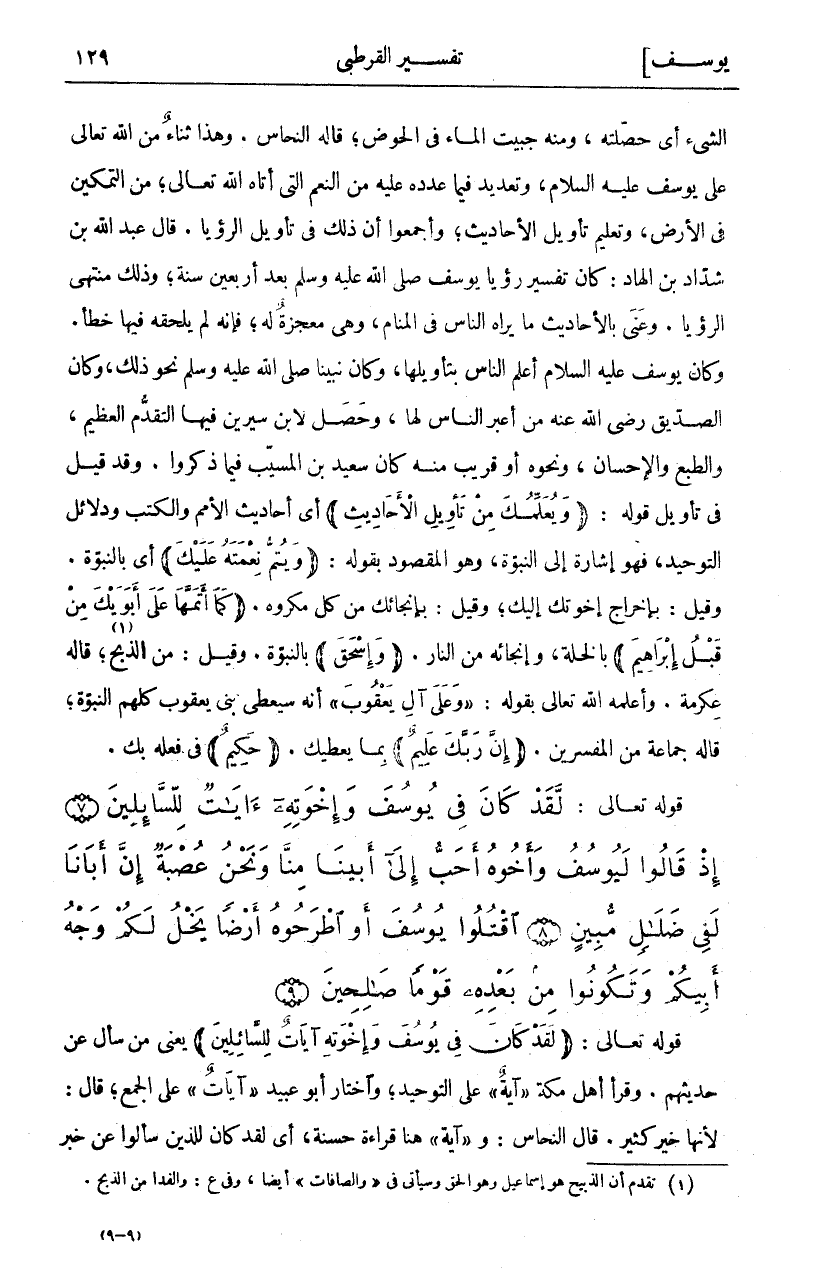 يوسف]
تفسير القرطبى
١٢٩
الشىء أى حصّلته ، ومنه جبيت الماء فى الحوض؛ قاله النحاس . وهذا ثناءٌ من الله تعالى
على يوسف عليه السلام، وتعديد فيما عدده عليه من النعم التى أتاه الله تعالى؛ من التمكين
فى الأرض، وتعليم تأويل الأحاديث؛ وأجمعوا أن ذلك فى تأويل الرؤيا . قال عبد الله بن
شدّاد بن الهاد : كان تفسير رؤيا يوسف صلى الله عليه وسلم بعد أربعين سنة؛ وذلك منتهى
الرؤيا . وعَنَى بالأحاديث ما يراه الناس فى المنام، وهى معجزةٌ له؛ فإنه لم يلحقه فيها خطأ.
وكان يوسف عليه السلام أعلم الناس بتأويلها، وكان نبينا صلى الله عليه وسلم نحو ذلك، وكان
الصدّيق رضى الله عنه من أعبر الناس لها ، وحَصَل لابن سيرين فيها التقدُّم العظيم ،
والطبع والإحسان ، ونحوه أو قريب منه كان سعيد بن المسيّب فيما ذكروا . وقد قيل
فى تأويل قوله : ﴿ وَيُعَلِّمُكَ مِنْ تَأْوِيلِ الْأَحَادِيثِ ﴾ أى أحاديث الأمم والكتب ودلائل
التوحيد، فهو إشارة إلى النبوّة، وهو المقصود بقوله : ﴿ وَيُتِمُّ نِعْمَتَهُ عَلَيْكَ ﴾ أى بالنبوّة .
وقيل : بإخراج إخوتك إليك؛ وقيل : بإنجائك من كل مكروه. ﴿ كَمَا أَتَمَّهَا عَلَى أَبَوَيْكَ مِنْ
قَبْلُ إِبْرَاهِيمَ ﴾ بالخلة، وإنجائه من النار . ﴿ وَإِسْحَقَ ﴾ بالنبوّة . وقيل : من الذبح(١)؛ قاله
عكرمة . وأعلمه الله تعالى بقوله : «وَعَلَى آلِ يَعْقُوبَ» أنه سيعطى بنى يعقوب كلهم النبوّة؛
قاله جماعة من المفسرين . ﴿ إِنَّ رَبَّكَ عَلِيمٌ ﴾ بما يعطيك . ﴿ حَكِيمٌ ﴾ فى فعله بك .
قوله تعالى : لَّقَدْ كَانَ فِى يُوسُفَ وَإِخْوَتِهِۦٓ ءَايَٰتٌ لِّلسَّآئِلِينَ ﴿٧﴾
إِذْ قَالُوا لَيُوسُفُ وَأَخُوهُ أَحَبُّ إِلَىٰٓ أَبِينَا مِنَّا وَنَحْنُ عُصْبَةٌ إِنَّ أَبَانَا
لَفِى ضَلَٰلٍ مُّبِينٍ ﴿٨﴾ ٱقْتُلُوا يُوسُفَ أَوِ ٱطْرَحُوهُ أَرْضًا يَخْلُ لَكُمْ وَجْهُ
أَبِيكُمْ وَتَكُونُوا مِنۢ بَعْدِهِۦ قَوْمًا صَٰلِحِينَ ﴿٩﴾
قوله تعالى : ﴿ لَقَدْ كَانَ فِى يُوسُفَ وَإِخْوَتِهِ آيَاتٌ لِلسَّائِلِينَ ﴾ يعنى من سأل عن
حديثهم . وقرأ أهل مكة «آيةٌ» على التوحيد؛ وآختار أبو عبيد «آيَاتٌ» على الجمع؛ قال :
لأنها خير كثير . قال النحاس : و «آية» هنا قراءة حسنة، أى لقد كان للذين سألوا عن خبر
(١) تقدم أن الذبيح هو إسماعيل وهو الحق وسيأتى فى «والصافات» أيضا ، وفى ع : والفدا من الذبح .
(٩-٩)